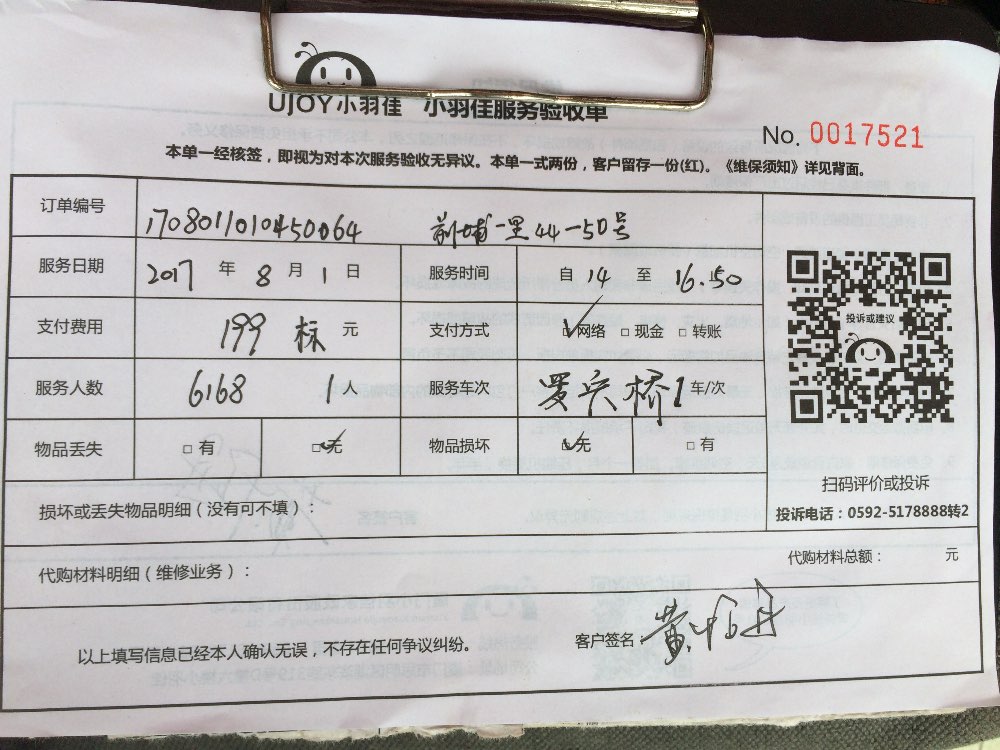 UJOY小羽佳 小羽佳服务验收单
No. 0017521
本单一经核签，即视为对本次服务验收无异议。本单一式两份，客户留存一份(红)。《维保须知》详见背面。
订单编号 1708011010450064 前埔一里44-50号
服务日期 2017 年 8 月 1 日 服务时间 自 14 至 16.50
投诉或建议
支付费用 199 标 元 支付方式 ☑网络 □现金 □转账
服务人数 6168 1人 服务车次 1 车/次
物品丢失 □有 ☑无 物品损坏 ☑无 □有
扫码评价或投诉
投诉电话：0592-5178888转2
损坏或丢失物品明细（没有可不填）：
代购材料明细（维修业务）： 代购材料总额： 元
以上填写信息已经本人确认无误，不存在任何争议纠纷。 客户签名：黄